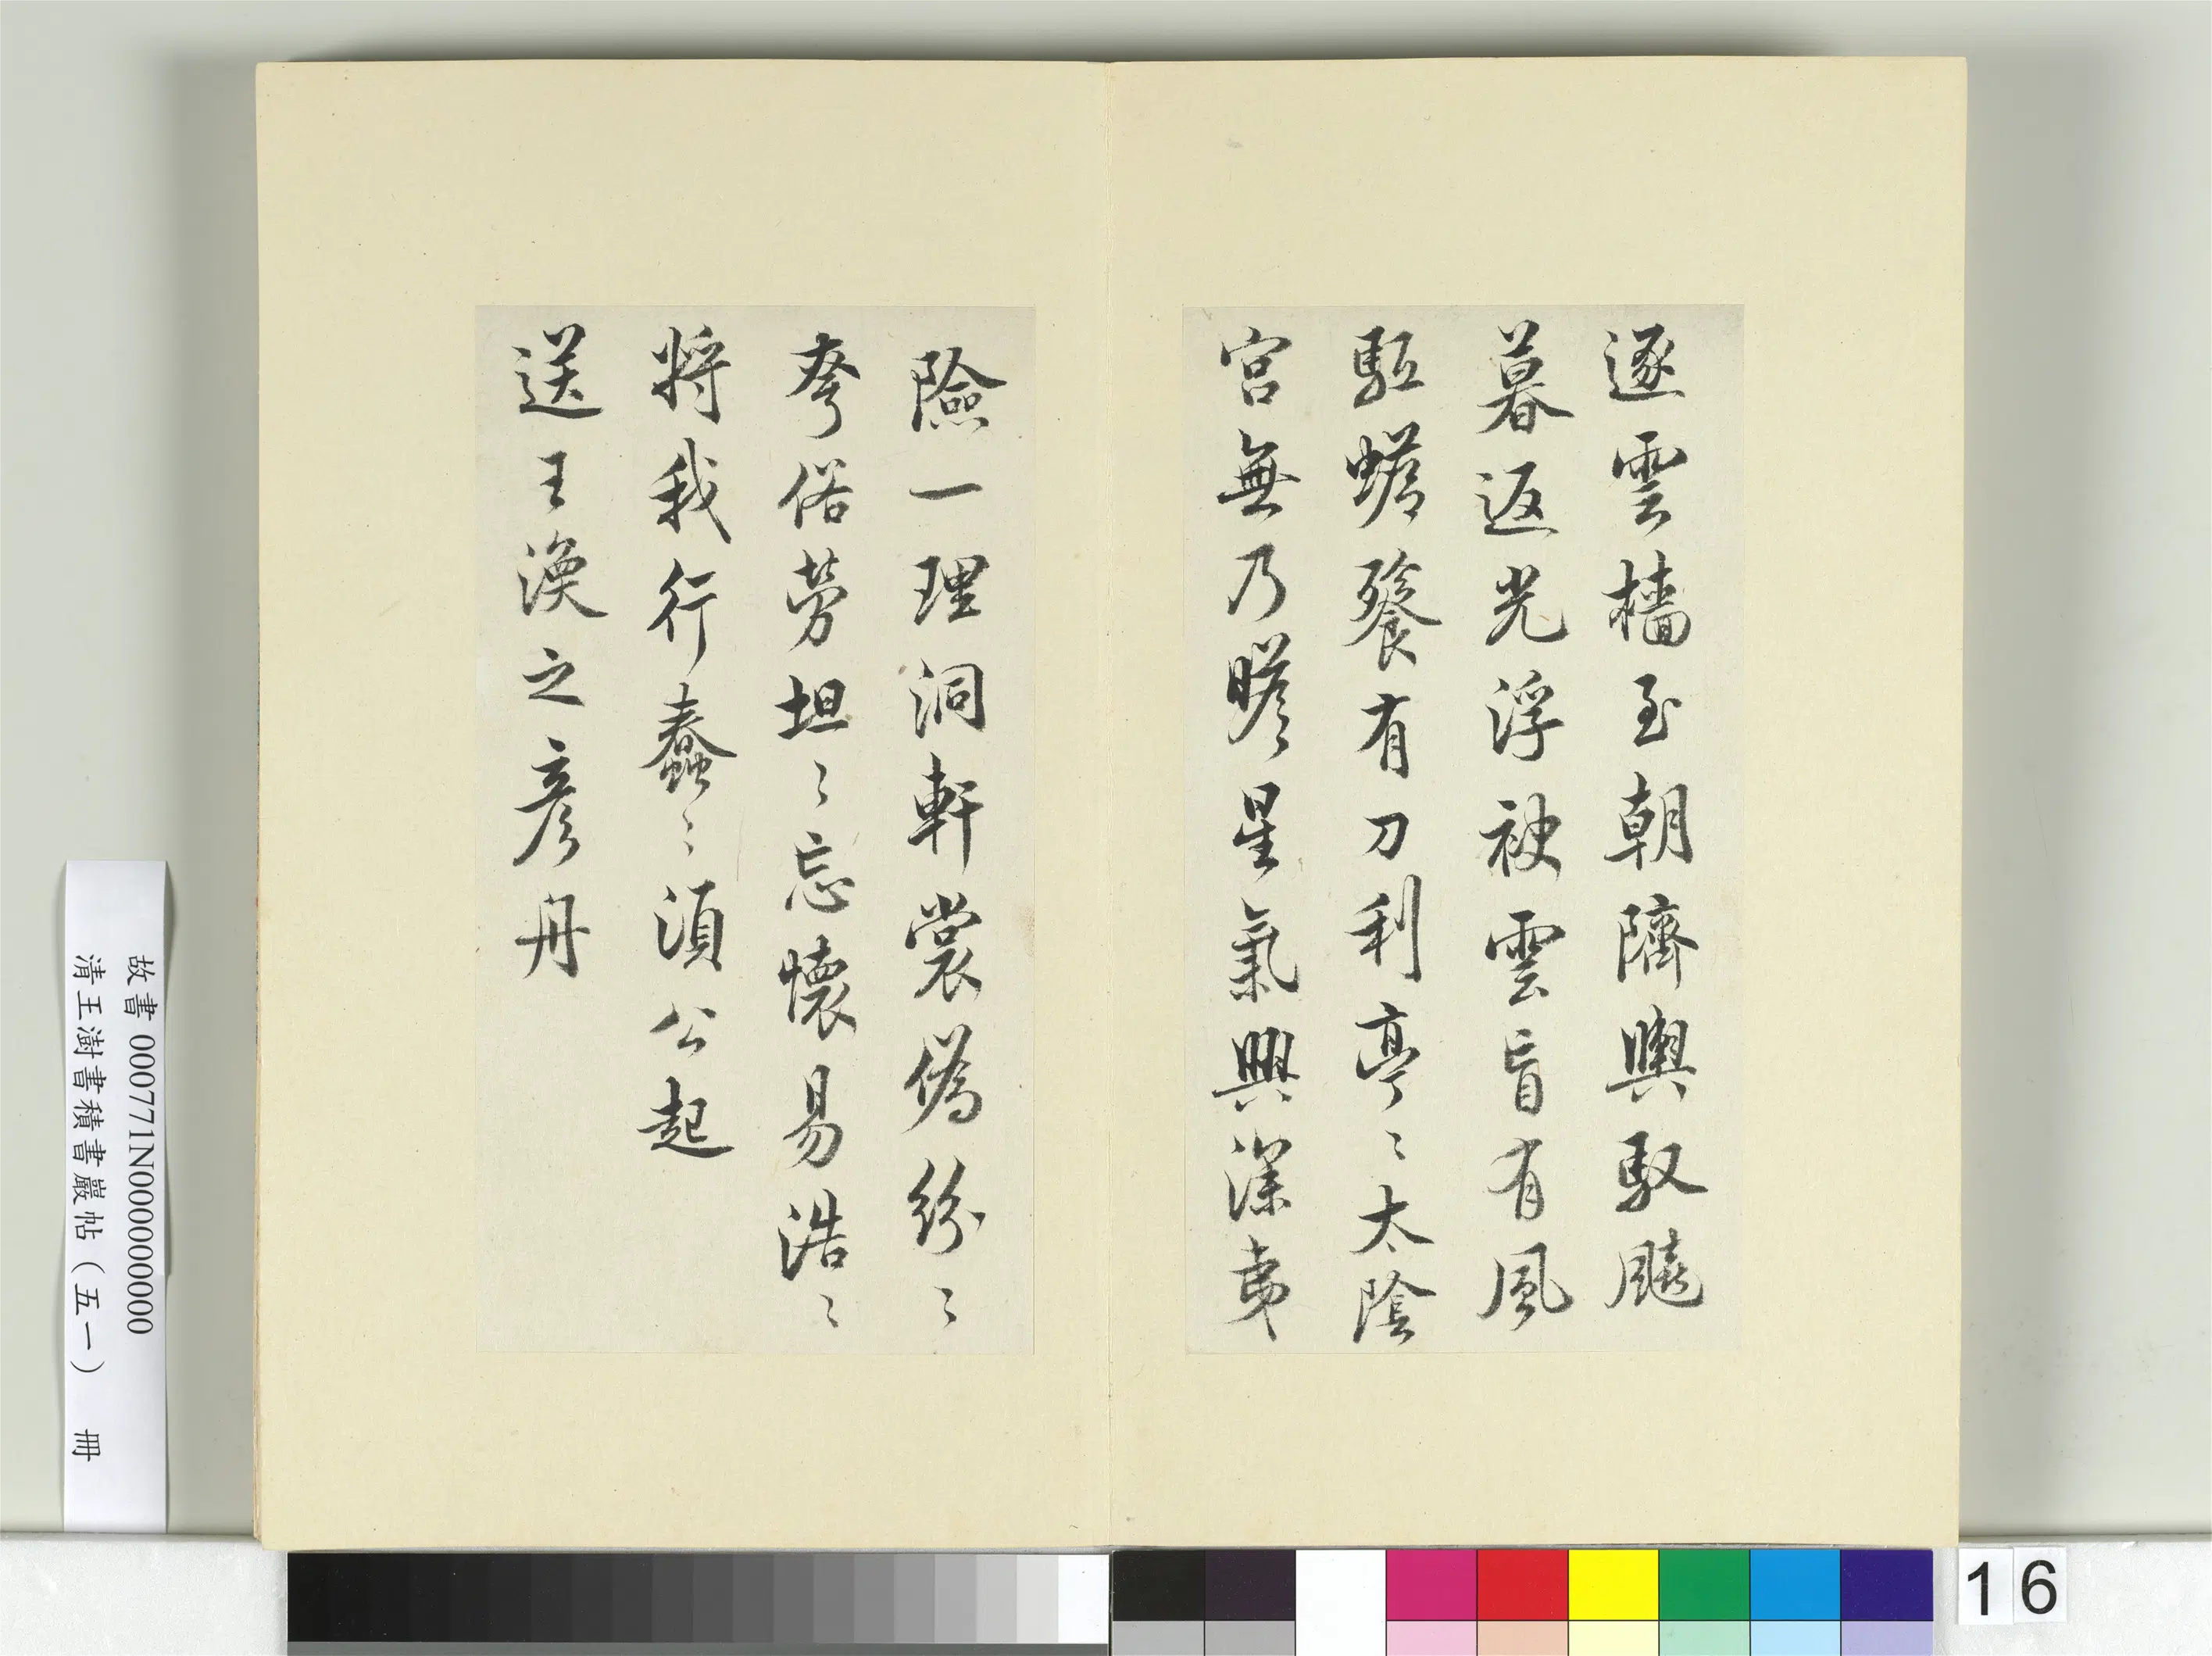 逐雲檣至朝隮輿馭飈
暮返光浮袂雲盲有風
駈蟾餮有刀利亭〻太陰
宮無乃瞻星氣興深夷
險一理洞軒裳偽紛〻
夸俗勞坦〻忘懷易浩〻
將我行蠢〻須公起
送王渙之彥舟
故書 000771N000000000
清王澍書積書巖帖(五一) 冊
16